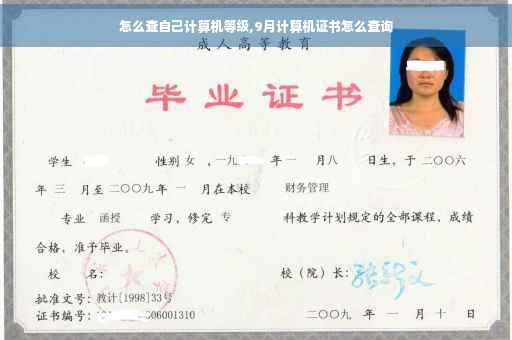 怎么查自己计算机等级,9月计算机证书怎么查询
成人高等教育
毕业证书
学生 性别 女 ,一九 年一 月八 日生,于二〇〇六
年 三 月至二〇〇九年 一 月在本校 财务管理
专业 函授 学习,修完 专 科教学计划规定的全部课程,成绩
合格,准予毕业。
校 名: 校(院)长:
批准文号:教计[1998]33号
证书编号: 06001310 二〇〇九 年 一 月 十 日